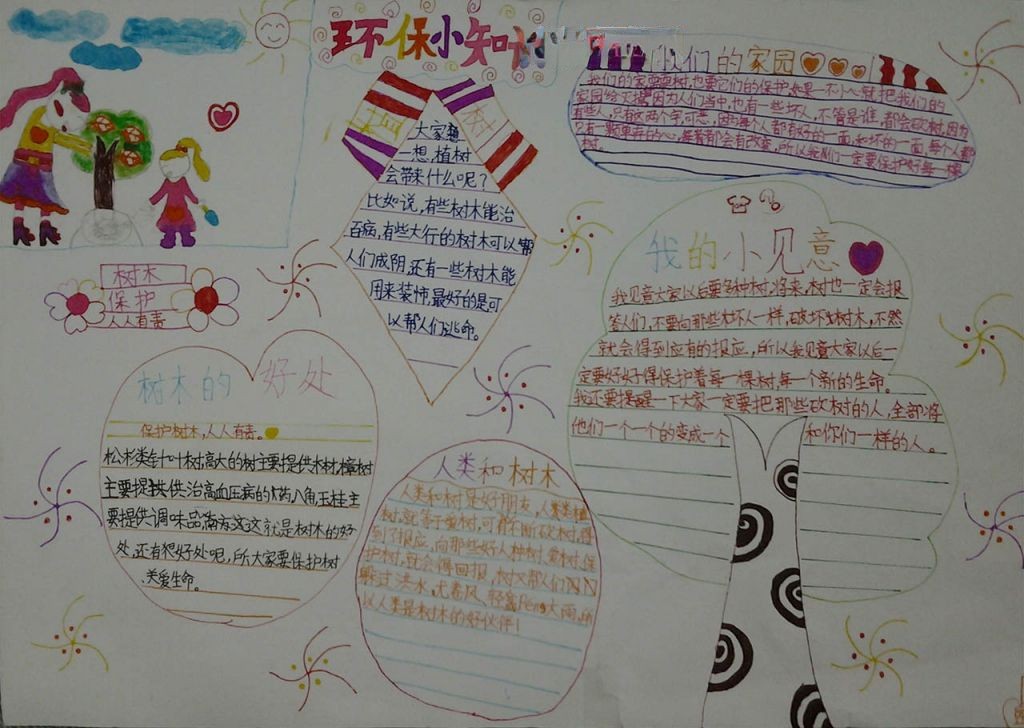 环保小知识
大家想
一想,植树
会带来什么呢?
比如说,有些树木能治
百病,有些大行的树木可以帮
人们成阴,还有一些树木能
用来装饰,最好的是可
以帮人们逃命。
们的家园
我们的家需要树,也要它们的保护如果一不小心就把我们的
家园给灭掉因为人们当中,也有一些坏人,不管是谁,都会砍树,因为
有些人,只有这两个字,可恶,因为每个人都有好的一面,和坏的一面,每个人都
只有一颗
会有改变,所以我们一定要保护好每一棵
树。
我的小见意
我见意大家以后要多种树,将来,树也一定会报
答人们,不要向那些坏人一样,破坏树木,不然
就会得到应有的报应,所以我见意大家以后一
定要好好得保护着每一棵树,每一个新的生命。
我还要提醒一下大家一定要把那些砍树的人,全部将
他们一个一个的变成一个
和你们一样的人。
树木
保护
人人有责
树木的好处
保护树木,人人有责。
松杉类针叶树高大的树主要提供木材,樟树
主要提供治高血压病的药八角玉桂主
要提供调味品,
这就是树木的好
处,还有很好处呢,所大家要保护树
关爱生命。
人类和树木
人类和树是好朋友,人类类植
树,就等于
可有不断砍树,得
到了报应,向那些好人种树,爱树,保
护树,就会得回报,树又帮人们NN
躲过洪水,尤卷风,轻盆Peng大雨,所
以人类是树木的好伙伴!